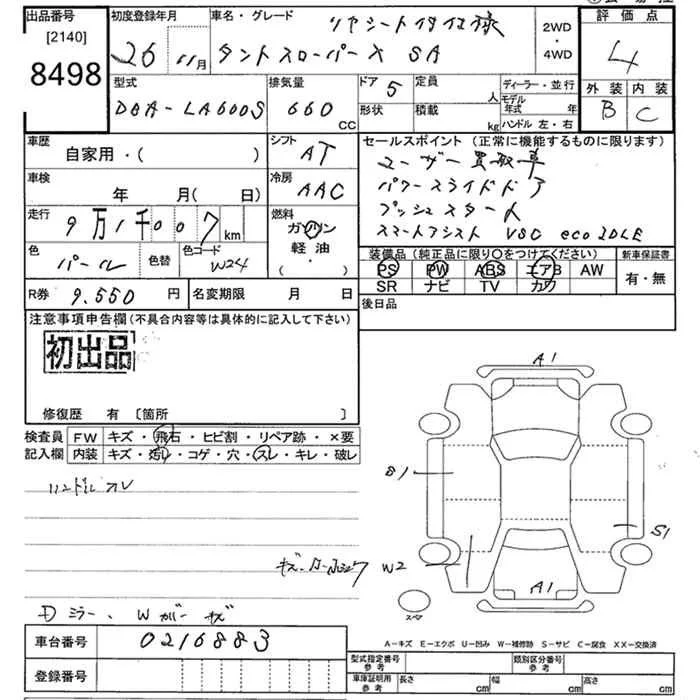 出品番号
[2140]
8498
初度登録年月
26 11月
車名・グレード
リヤシート付仕様
タントスローパーX SA
2WD
・
4WD
評価点
4
外装 内装
B C
型式
DBA-LA600S
排気量
660 CC
ドア 5
形状
定員 人
積載 kg
ディーラー・並行
モデル年式 年
ハンドル 左・右
車歴
自家用・( )
シフト
AT
車検
年 月(日)
冷房
AAC
走行
9万1千007km
燃料
ガソリン
軽油
( ・ )
色
パール
色替
色コード
W24
R券 9.550 円
名変期限 月 日
セールスポイント(正常に機能するものに限ります)
ユーザー買取車
パワースライドドア
プッシュスタート
スマートアシスト VSC eco IDLE
装備品(純正品に限り○をつけてください)
PS PW ABS エアB AW
SR ナビ TV カワ
新車保証書
有・無
後日品
注意事項申告欄(不具合内容等は具体的に記入して下さい)
初出品
修復歴 有 [箇所 ]
検査員記入欄
FW キズ・飛石・ヒビ割・リペア跡・×要
内装 キズ・汚レ・コゲ・穴・スレ・キレ・破レ
ハンドルスレ
A1
S1
W2
A1
スペア
ミラー、Wカバーキズ
A-キズ E-エクボ U-凹み W-補修跡 S-サビ C-腐食 XX-交換済
車台番号 0216883
登録番号
型式指定番号 参考
類別区分番号 参考
車庫証明用 参考
長さ cm
幅 cm
高さ cm